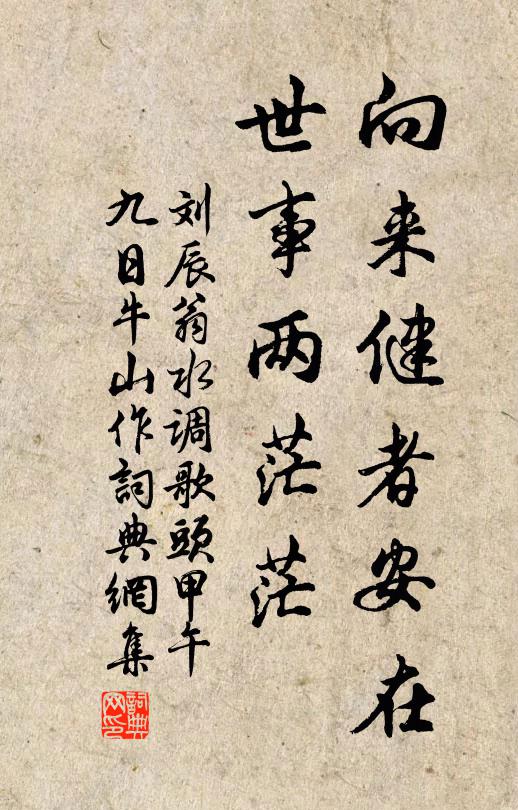 向来健者安在
世事两茫茫
刘辰翁水调歌頭甲午
九日牛山作詞典網集
詞典
网印